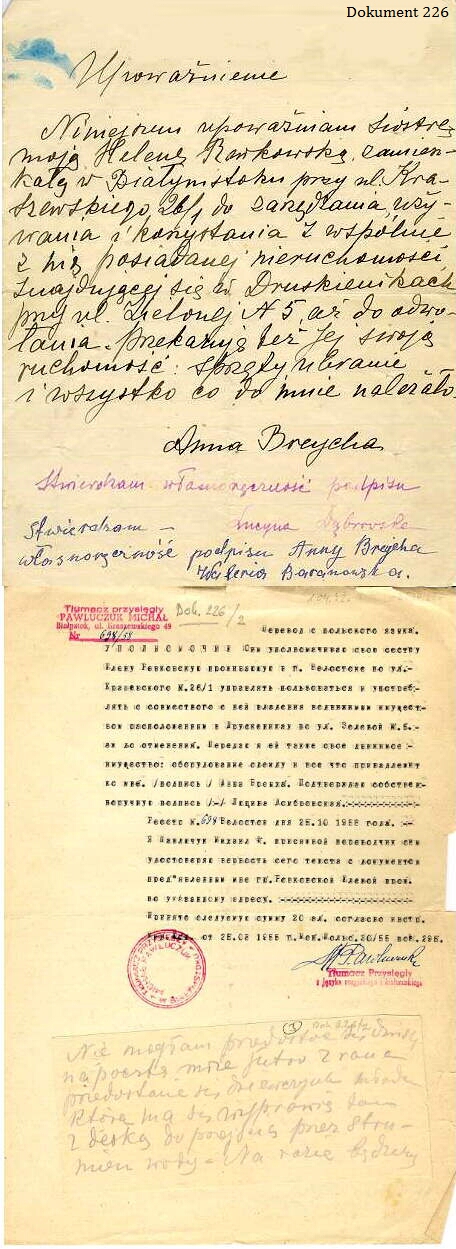 Dokument 226
Upoważnienie
Niniejszem upoważniam siostrę
moją Helenę Rawkowską, zamiesz-
kałą w Białymstoku przy ul. Kra-
szewskiego 26/1, do zarządzania, uży-
wania i korzystania z wspólnie
z nią posiadanej nieruchomości
znajdującej się w Druskienikach
przy ul. Zielonej N 5, aż do odwo-
łania. Przekazuję też Jej swoją
ruchomość: sprzęty ubranie
i wszystko co do mnie należało.
Anna Breycha
Stwierdzam własnoręczność podpisu
Lucyna Dąbrowska
Stwierdzam –
własnoręczność podpisu Anny Brejcha
Waleria Baranowska.
Tłumacz przysięgły
PAWLUCZUK MICHAŁ
Białystok, ul. Kraszewskiego 49
Nr 698/58
Dok. 226/2
Перевод с польского языка.
У П О Л Н О М О Ч И Е Сим уполномачиваю свою сестру
Елену Равковскую проживающую в г. Белостоке по ул.
Крашевского М.26/1 управлять пользоваться и употреб-
лять с совместного с ней владения недвижимым имущест-
вом расположенным в Друскениках по ул. Зеленой М.5.-
аж до отменения. Передаю я ей также свое движимое-
имущество: оборудование одежду и все что принадлежит
ко мне. /подпись/ Анна Брейха. Подтверждаю собствен-
норучную подпись /-/ Люцина
Реестр М.698 Белосток дня 25.10 1958 года.
Я Павлючук Михаил присяжной переводчик сим
удостоверяю верность сего текста с документом
пред'явленным мне гр. Равковской Еленой прож.
по указанному адресу.
следуемую сумму 20 зл. согласно
от 25.08 1955 г.
Pawluczuk
Tłumacz Przysięgły
z języka rosyjskiego i białoruskiego
Nie mogłam przedostać się dzisiaj
na pocztę może jutro z rana
przedostanie się dziewczynka młoda
która ma się wyprawić tam
z deską do przejścia przez stru-
mień wody. – Na razie